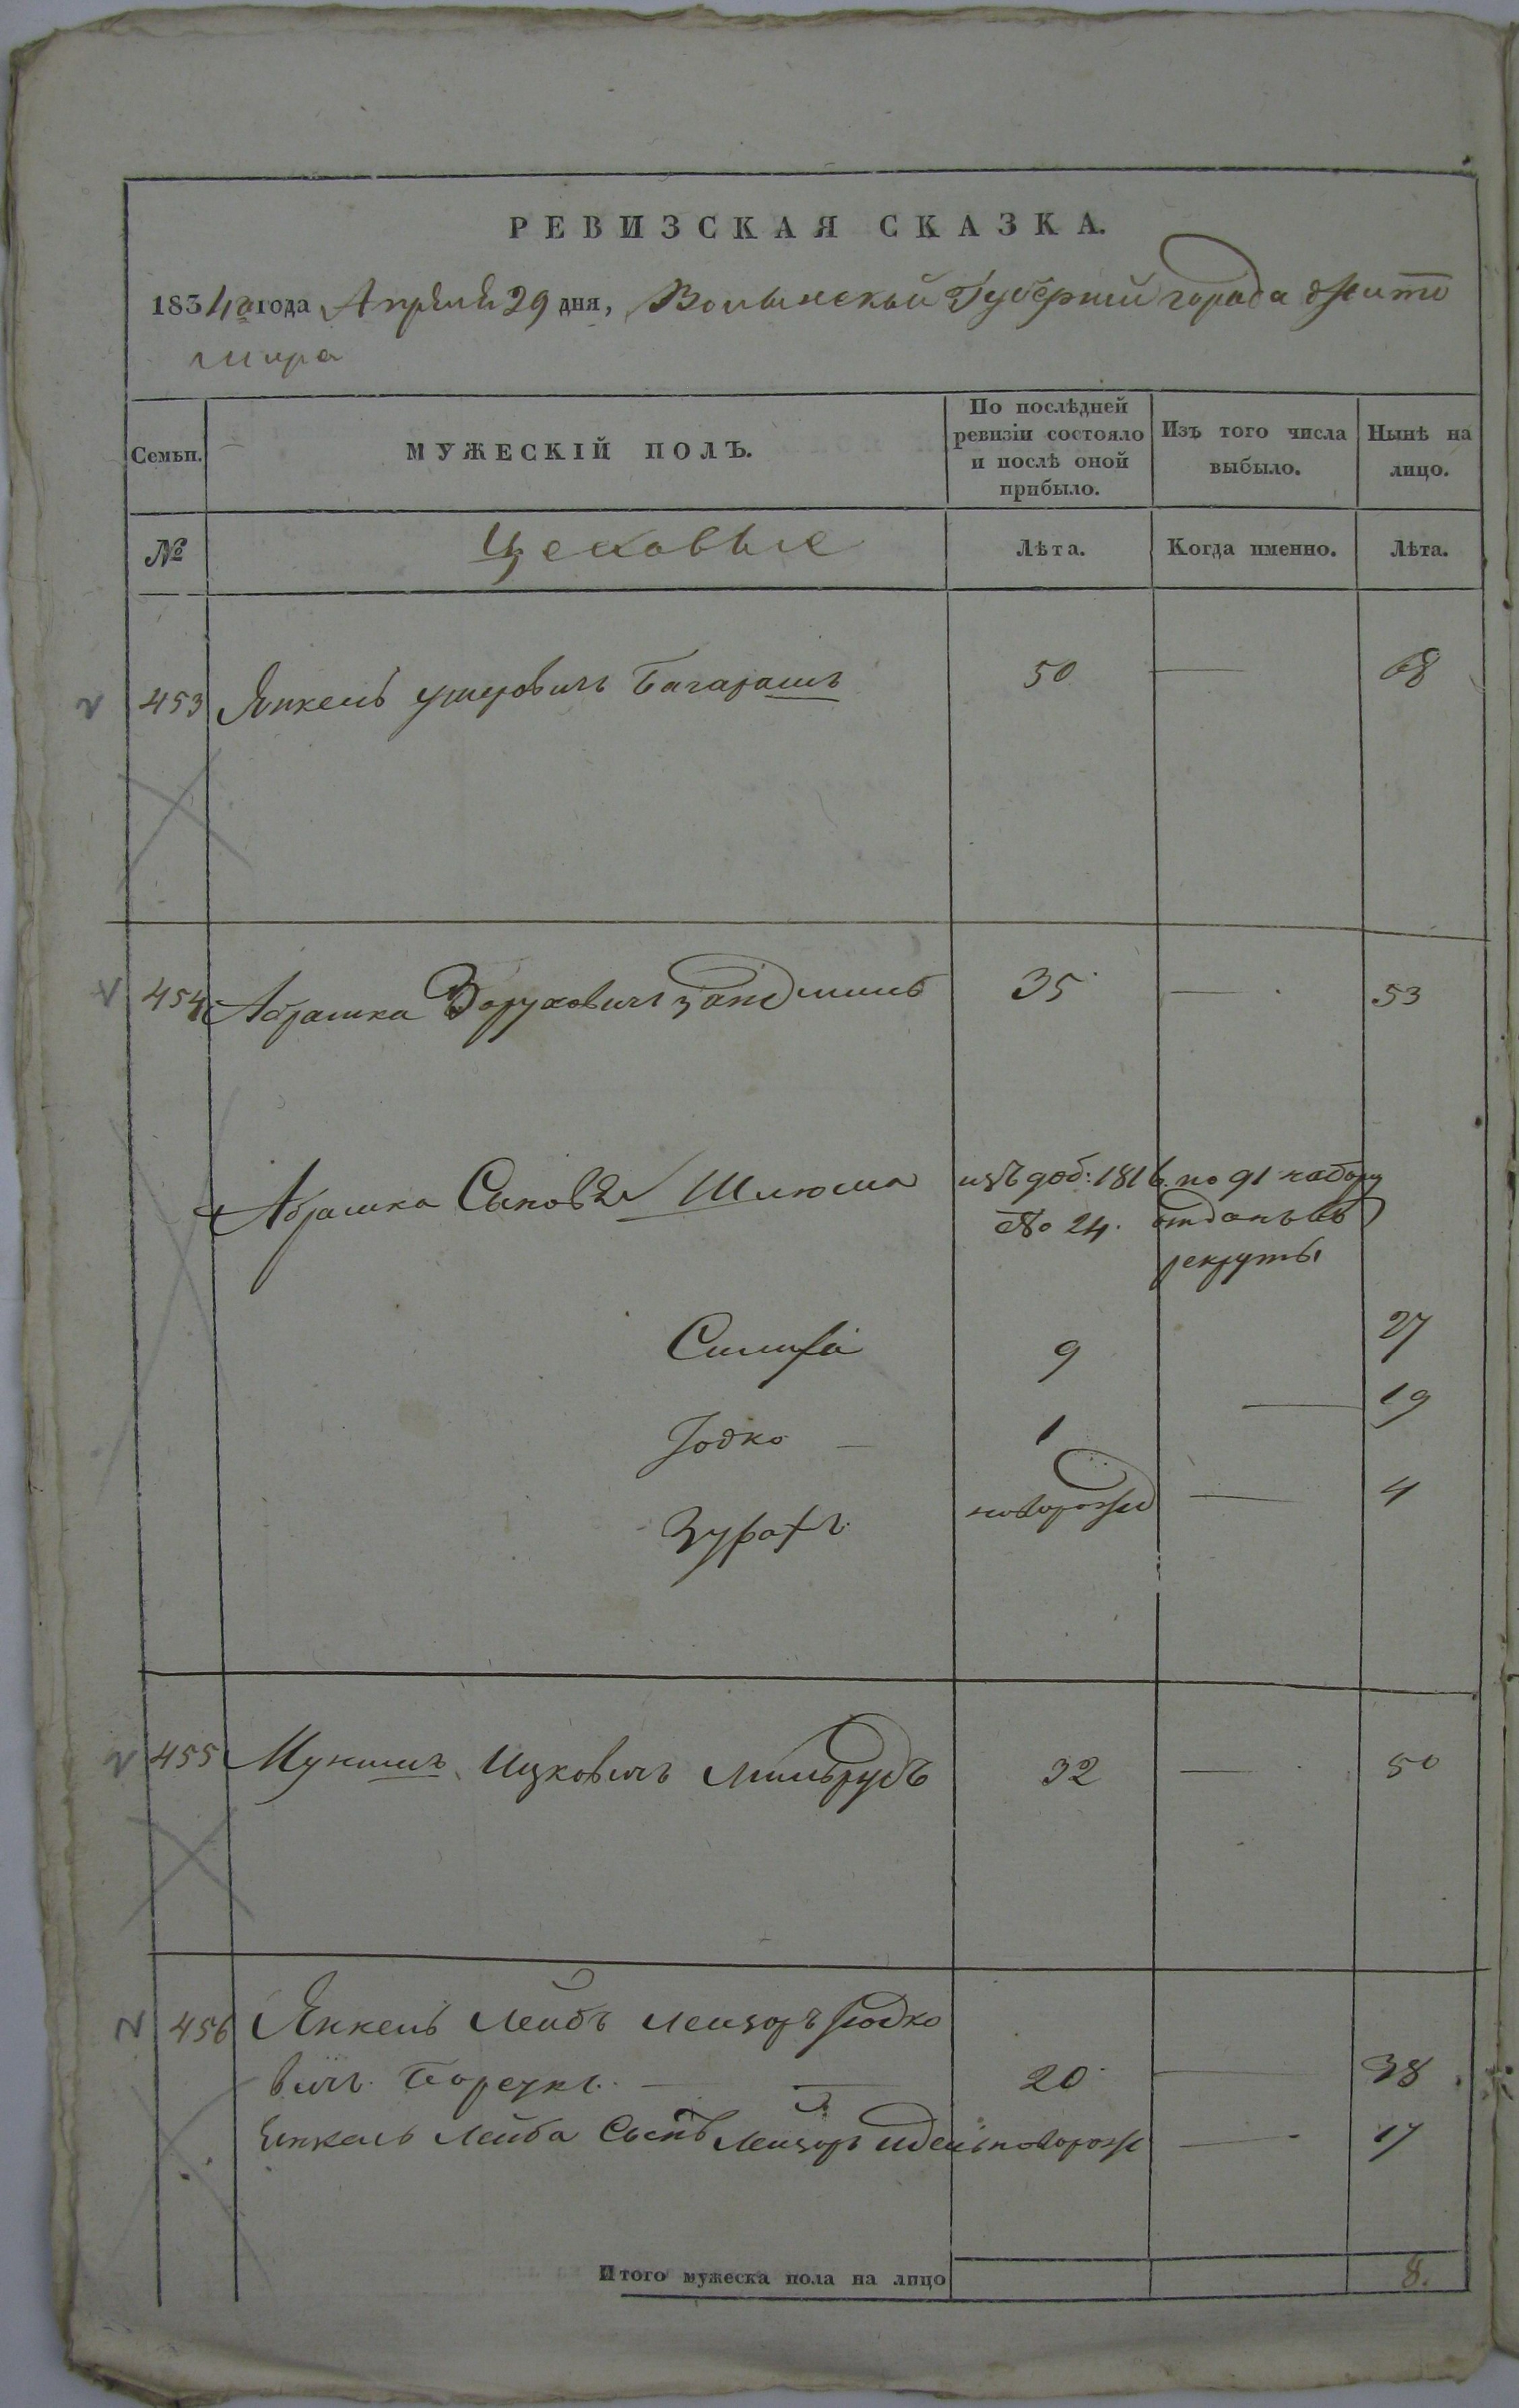 РЕВИЗСКАЯ СКАЗКА.
1834го года Апреля 29 дня, Волынской Губернии города Жито
мира
Семьи.
МУЖЕСКІЙ ПОЛЪ.
По послѣдней ревизіи состояло и послѣ оной прибыло.
Изъ того числа выбыло.
Нынѣ на лицо.
№
Цеховые
Лѣта.
Когда именно.
Лѣта.
453 Янкель Ушеровичъ 50 — 68
454 Абрашка Боруховичъ 35 — 53
Абрашка Сыновья Шлиома изъ доб: 1816. по 91 набору
№ 24. отданъ въ
рекруты
Симха 9 27
Іодко — 1 — 19
новорож — 4
455 Ицковичъ 32 — 50
456 Янкель Лейбъ Лейзоръ Іодко
вичъ — — 20 — 38
Янкель Лейба Сынъ Лейзоръ новорож — 17
Итого мужеска пола на лицо 8.